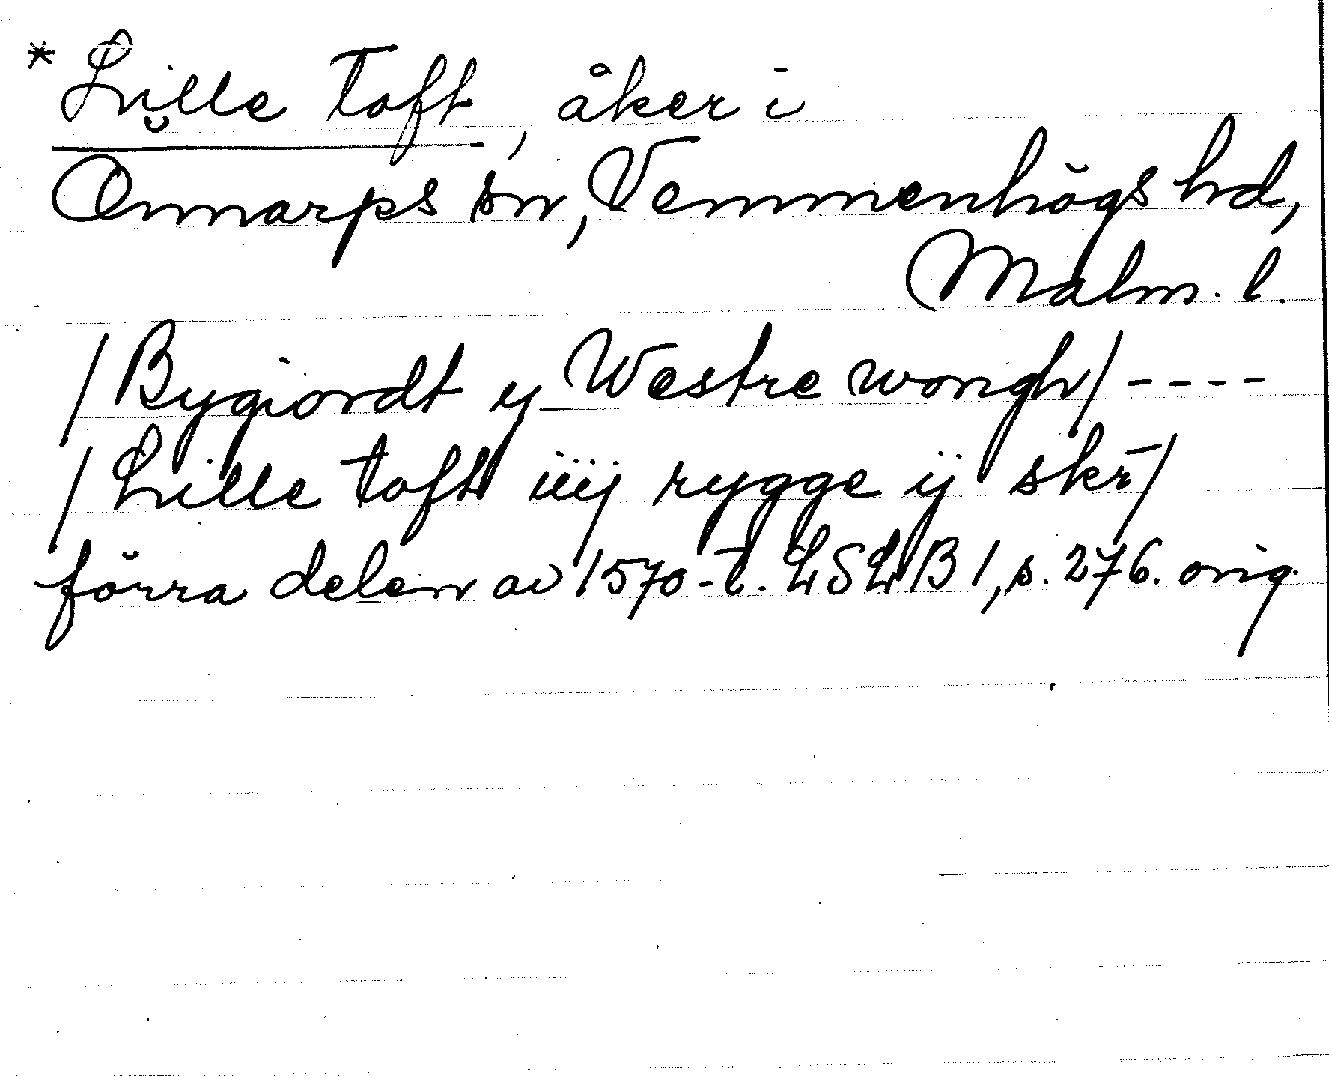 * Lille Toft, åker i
Önnarps sn, Vemmenhögs hd,
Malm. l.
/Bygiordt y Westre wongh/ ----
/Lille toft iiij rygge ij skr̄/
förra delen av 1570-t. LSLB 1, s. 276. orig.